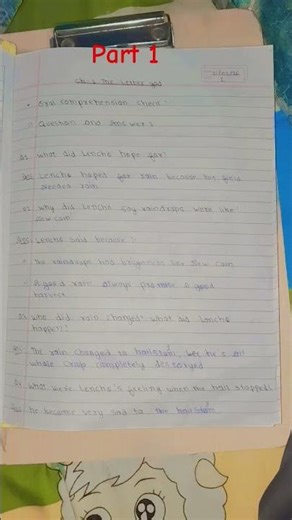 Part 1
Ch-1 The Letter God
Oral comprehension check:
Question and answer:
Q1 What did Lencho hope for?
Ans Lencho hoped for rain because his field
needed rain
Q2 Why did Lencho say raindrops were like
new coin
Ans Lencho said because:
The raindrops had like new coin
A good rain always promise a good
harvest.
did rain changed? what did Lencho
The rain changed to hailstom,
whole crop completely destroyed
What were Lencho's feeling when the hail stopped?
he became very sad to the hailstom